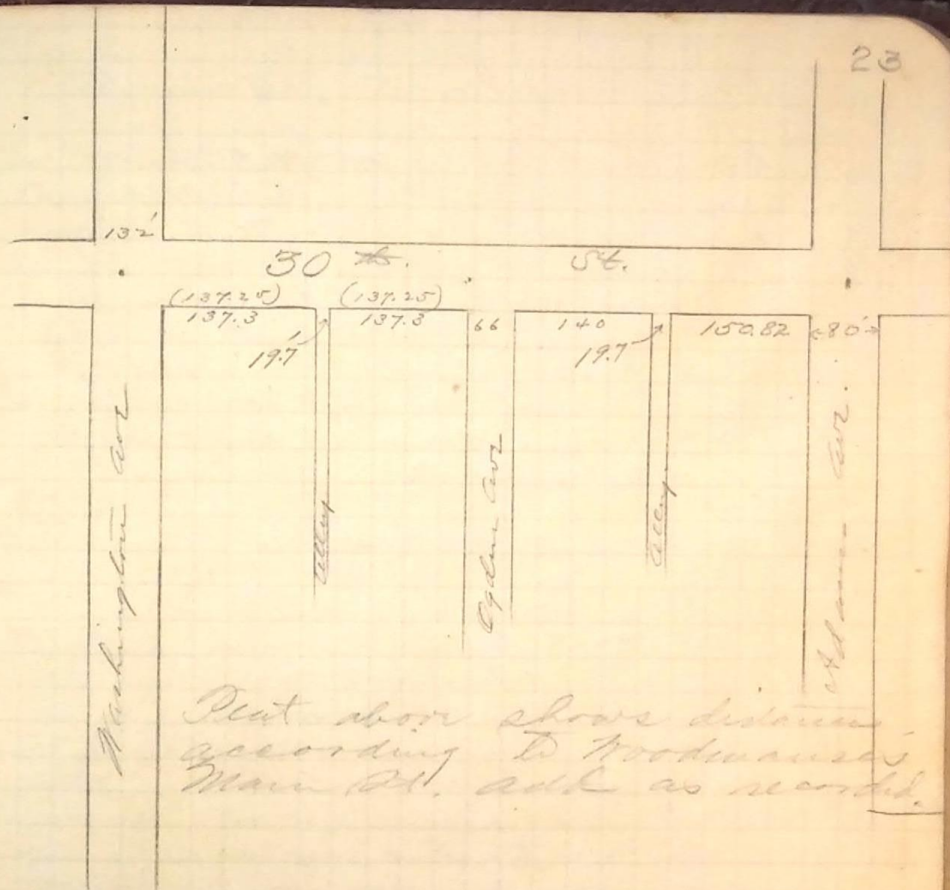 23
132'
30 th. St.
(137.25) (137.25)
137.3 137.3 66 140 150.82 80'
19.7' 19.7
Washington Ave
Alley
Ogden Ave
Alley
Adams Ave.
Plat above shows distances
according to Woodmansee's
Main St. Add as recorded.